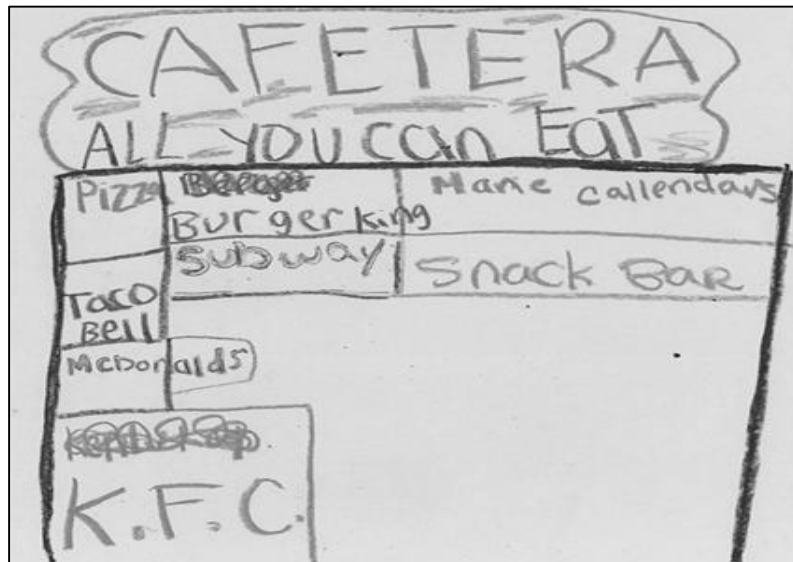 CAFETERA
ALL YOU can EaT
Pizza
Burger king
Marie callendars
Subway
Snack BaR
Taco
Bell
McDonalds
K.F.C.